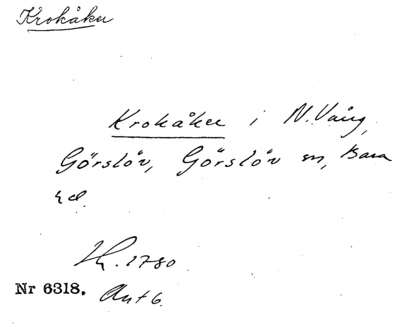 Krokåker
Krokåker i N. Vång,
Görslöv, Görslöv sn, Bara
hd.
1780
Nr 6318. Akt 6.